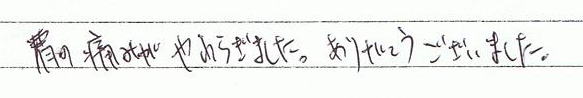 肩の痛みが やわらぎました。ありがとうございました。